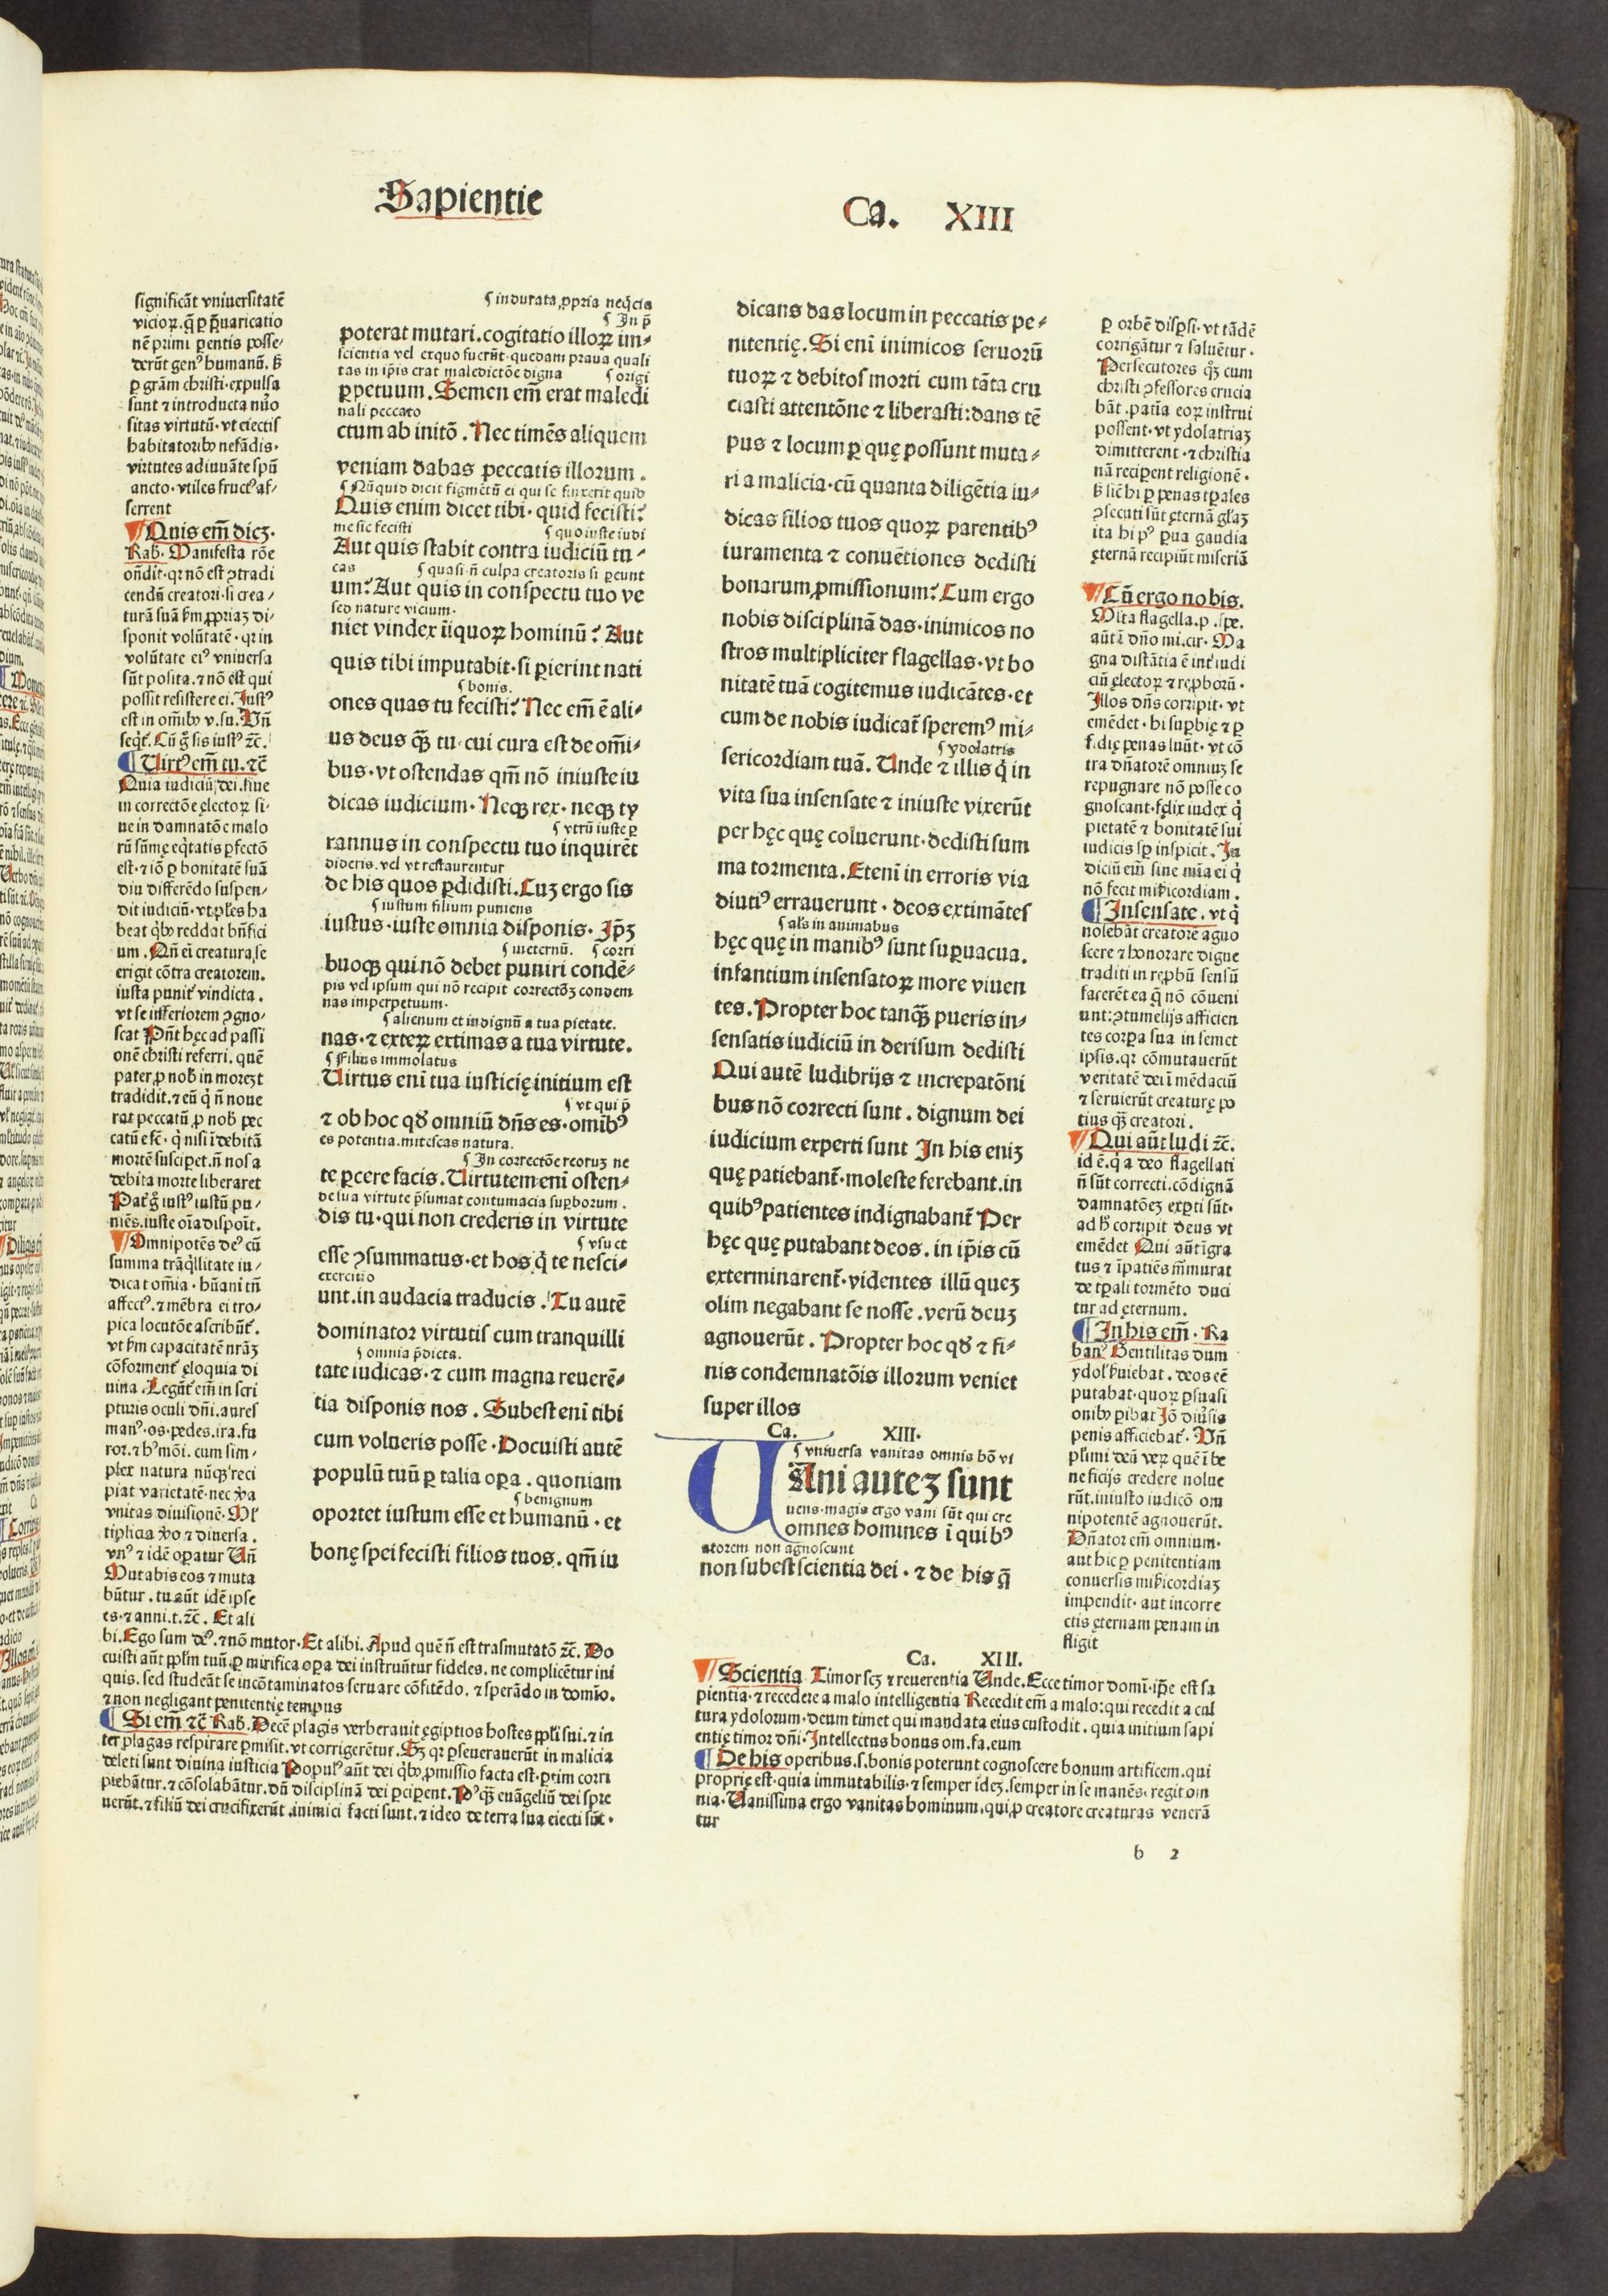 Sapientie
Ca. XIII
significãt vniuersitatẽ
vicioꝝ. q̃ ꝑ p̃uaricatio
nẽ primi ꝑentis posse⸗
derũt genꝰ humanũ. ꝑ grãm christi expulsa
sunt ⁊ introducta
sitas virtutũ. vt eiectis
habitatoribꝰ nefãdis.
virtutes adiuuãte spũ
ancto. vtiles fructꝰ af⸗
ferrent
Quis em̃ dicꝫ.
Rab. Manifesta rõe
oñdit. qꝛ nõ est ꝯtradi
cendũ creatori. si crea⸗
turã suã ẜm ꝓpriaꝫ di⸗
sponit volũtatẽ. qꝛ in
volũtate eiꝰ vniuersa
sũt posita. ⁊ nõ est qui
possit resistere ei. Iustꝰ
est in om̃ibꝰ v. su. Vñ
seqt̃. Cũ g̊ sis iustꝰ ⁊c̃.
Uirtꝰ em̃ tu. ⁊c̃
Quia iudiciũ dei. siue
in correctõe ęlectoꝝ si⸗
ue in damnatõe malo
rũ sũmę eq̃tatis ꝑfectõ
est. ⁊ iõ ꝑ bonitatẽ suã
diu differẽdo suspen⸗
dit iudiciũ. vt ꝑłes ha
beat qⁱbꝰ reddat bñfici
um. Qñ eĩ creatura se
erigit cõtra creatorem.
iusta punit̃ vindicta.
vt se inferiorem ꝯgno⸗
scat Pñt hęc ad passi
onẽ christi referri. quẽ
pater ꝓ nob̃ in morte
tradidit. ⁊ eũ qⁱ ñ noue
rat peccatũ ꝓ nob̃ pec
catũ efc̃. qⁱ nisi ĩdebitã
mortẽ suscip̃et. ñ nos a
debita morte liberaret
Pat̃ g̊ iustꝰ iustũ pu⸗
niẽs. iuste oĩa dispoĩt.
Omnipotẽs deꝰ cũ
summa trãqⁱllitate iu⸗
dicat om̃ia. hũani tñ
affectꝰ. ⁊ mẽbra ei tro⸗
pica locutõe ascribũt̃.
vt ẜm capacitatẽ nrãꝫ
cõforment̃ ęloquia di
uina. Legũt̃ em̃ in scri
pturis oculi dñi. aures
manꝰ. os. pedes. ira. fu
ror. ⁊ hꝰmõi. cum sim⸗
plex natura nũqꝫ reci
piat varietatẽ. nec ꝟa
vnitas diuisionẽ. Mł
tiplicia ꝟo ⁊ diuersa.
vnꝰ ⁊ idẽ oꝑatur Uñ
Mutabis eos ⁊ muta
bũtur. tu aũt idẽ ipse
es. ⁊ anni. t. ⁊c̃. Et ali
bi. Ego sum deꝰ. ⁊ nõ mutor. Et alibi. Apud quẽ ñ est trasmutatõ ⁊c̃. Do
cuisti aũt pp̃łm tuũ. ꝑ mirifica oꝑa dei instruũtur fideles. ne complicẽtur ini
quis. sed studeãt se incõtaminatos seruare cõfitẽdo. ⁊ sperãdo in domĩo.
⁊ non negligant penitentię tempus
Si em̃ ⁊c̃ Rab. Decẽ plagis verberauit ęgiptios hostes pp̃li sui. ⁊ in
ter plagas respirare ꝑmisit. vt corrigerẽtur. Sꝫ qꝛ ꝑseuerauerũt in malicia
deleti sunt diuina iusticia Populꝰ aũt dei qⁱbꝰ ꝓmissio facta est. ꝑtim corri
piebãtur. ⁊ cõsolabãtur. dũ disciplinã dei ꝑcipent. Pꝰ qꝫ euãgeliũ dei spre
uerũt. ⁊ filiũ dei crucifixerũt inimici facti sunt. ⁊ ideo de terra sua eiecti sũt.
indurata ꝓpria neqⁱcia
In p̃
poterat mutari. cogitatio illoꝝ im⸗
scientia vel exquo fuerũt. quedam praua quali
tas in ip̃is erat maledictõe digna origi
ꝑpetuum. Semen em̃ erat maledi
nali peccato
ctum ab initõ. Nec timẽs aliquem
veniam dabas peccatis illorum.
Nũquid dicit figmẽtũ ei qui se finxerit quid
Quis enim dicet tibi. quid fecisti?
me sic fecisti quo iuste iudi
Aut quis stabit contra iudiciũ tu⸗
cas quasi. ñ culpa creatoris si ꝑeunt
um? Aut quis in conspectu tuo ve
sed nature vicium.
niet vindex iĩquoꝝ hominũ? Aut
quis tibi imputabit. si ꝑierint nati
bonis.
ones quas tu fecisti? Nec em̃ ẽ ali⸗
us deus qꝫ tu. cui cura est de om̃i⸗
bus. vt ostendas qm̃ nõ iniuste iu
dicas iudicium. Neqꝫ rex. neqꝫ ty
vtrũ iuste ꝑ
rannus in conspectu tuo inquirẽt
dideris. vel vt restaurentur
de his quos ꝑdidisti. Cuꝫ ergo sis
iustum filium puniens
iustus. iuste omnia disponis. Ip̃ꝫ
ineternũ. corri
buoqꝫ qui nõ debet puniri condẽ⸗
pis vel ipsum qui nõ recipit correctõꝫ condem
nas imperpetuum.
alienum et indignũ a tua pietate.
nas. ⁊ exteꝝ extimas a tua virtute.
Filius immolatus
Uirtus enĩ tua iusticię initium est
vt qui p̃
⁊ ob hoc qđ omniũ dñs es. omĩbꝰ
es potentia. mitescas natura.
In correctõe reoruꝫ ne
te ꝑcere facis. Uirtutem enĩ osten⸗
de sua virtute p̃sumat contumacia suꝑborum.
dis tu. qui non crederis in virtute
vsu et
esse ꝯsummatus. et hos qⁱ te nesci⸗
exercitio
unt. in audacia traducis. Tu autẽ
dominator virtutis cum tranquilli
omnia p̃dicta.
tate iudicas. ⁊ cum magna reuerẽ⸗
tia disponis nos. Subest enĩ tibi
cum volueris posse. Docuisti autẽ
populũ tuũ ꝑ talia oꝑa. quoniam
benignum
oportet iustum esse et humanũ. et
bonę spei fecisti filios tuos. qm̃ iu
dicans das locum in peccatis pe⸗
nitentię. Si enĩ inimicos seruorũ
tuoꝝ ⁊ debitos morti cum tãta cru
ciasti attentõne ⁊ liberasti: dans tẽ
pus ⁊ locum ꝑ quę possunt muta⸗
ri a malicia. cũ quanta diligẽtia iu⸗
dicas filios tuos quoꝝ parentibꝰ
iuramenta ⁊ conuẽtiones dedisti
bonarum ꝓmissionum? Cum ergo
nobis disciplinã das. inimicos no
stros multipliciter flagellas. vt bo
nitatẽ tuã cogitemus iudicãtes. et
cum de nobis iudicat̃ speremꝰ mi⸗
ydolatris
sericordiam tuã. Unde ⁊ illis qⁱ in
vita sua insensate ⁊ iniuste vixerũt
per hęc quę coluerunt. dedisti sum
ma tormenta. Etenĩ in erroris via
diutiꝰ errauerunt. deos extimãtes
als in animabus
hęc quę in manibꝰ sunt suꝑuacua.
infantium insensatoꝝ more viuen
tes. Propter hoc tanqꝫ pueris in⸗
sensatis iudiciũ in derisum dedisti
Qui autẽ ludibrijs ⁊ increpatõni
bus nõ correcti sunt. dignum dei
iudicium experti sunt In his eniꝫ
quę patiebant̃. moleste ferebant. in
quibꝰ patientes indignabant̃ Per
hęc quę putabant deos. in ip̃is cũ
exterminarent̃. videntes illũ queꝫ
olim negabant se nosse. verũ deuꝫ
agnouerũt. Propter hoc qđ ⁊ fi⸗
nis condemnatõis illorum veniet
super illos
Ca. XIII.
vniuersa vanitas omnis hõ vi
UAni auteꝫ sunt
uens. magis ergo vani sũt qui cre
omnes homines ĩ quibꝰ
atorem non agnoscunt
non subest scientia dei. ⁊ de his q̃
ꝑ orbẽ disp̃si. vt tãdẽ
corrigãtur ⁊ saluẽtur.
Persecutores qꝫ cum
christi ꝯfessores crucia
bãt. patĩa eoꝝ instrui
possent. vt ydolatriaꝫ
dimitterent. ⁊ christia
nã recip̃ent religionẽ.
ꝑ penas tp̃ales
ꝯsecuti sũt ęternã gl̃aꝫ
ita hi pꝰ ꝑua gaudia
ęternã recipiũt miseriã
Cũ ergo nobis.
Mĩta flagella. p. spe.
aũtẽ dño mi. cir. Ma
gna distãtia ẽ int̃ iudi
ciũ ęlectoꝝ ⁊ reꝓborũ.
Illos dñs corripit. vt
emẽdet. hi suꝑbię ⁊ ꝑ
fidię penas luũt. vt cõ
tra dñatorẽ omniuꝫ se
repugnare nõ posse co
gnoscant. fęlix iudex qⁱ
pietatẽ ⁊ bonitatẽ sui
iudicis sꝑ inspicit. Iu
diciũ em̃ sine mĩa ei qⁱ
nõ fecit misĩcordiam.
Insensate. vt qⁱ
nolebãt creatorẽ agno
scere ⁊ honorare digne
traditi in reꝓbũ sensũ
facerẽt ea q̃ nõ cõueni
unt: ꝯtumelijs afficien
tes corꝑa sua in semet
ipsis. qꝛ cõmutauerũt
veritatẽ dei ĩ mẽdaciũ
⁊ seruierũt creaturę po
tius qꝫ creatori.
Qui aũt ludi ⁊c̃.
id ẽ. qⁱ a deo flagellati
ñ sũt correcti. cõdignã
damnatõeꝫ exꝑti sũt.
ad h̃ corripit deus vt
emẽdet Qui aũt ĩgra
tus ⁊ ĩpatiẽs m̃murat
de tp̃ali tormẽto duci
tur ad ęternum.
In his em̃. Ra
banꝰ Gentilitas dum
ydoł ẜuiebat. deos eẽ
putabat. quoꝝ ꝑsuasi
onibꝰ ꝑibat Iõ diũsis
penis afficiebat̃. Uñ
pł̃imi deũ veꝝ quẽ ĩ be
neficijs credere nolue
rũt. iniusto iudicõ om
nipotentẽ agnouerũt.
Dñator em̃ omnium.
aut hic ꝑ penitentiam
conuersis misĩcordiaꝫ
impendit. aut incorre
ctis ęternam penam in
fligit
Ca. XIII.
Scientia Timor scꝫ ⁊ reuerentia Unde. Ecce timor domĩ. ip̃e est sa
pientia. ⁊ recedere a malo intelligentia Recedit em̃ a malo: qui recedit a cul
tura ydolorum. deum timet qui mandata eius custodit. quia initium sapi
entię timor dñi. Intellectus bonus om. fa. eum
De his operibus. s. bonis poterunt cognoscere bonum artificem. qui
proprię est. quia immutabilis. ⁊ semper ideꝫ. semper in se manẽs. regit om
nia. Uanissima ergo vanitas hominum. qui ꝓ creatore creaturas venerã
tur
b 2